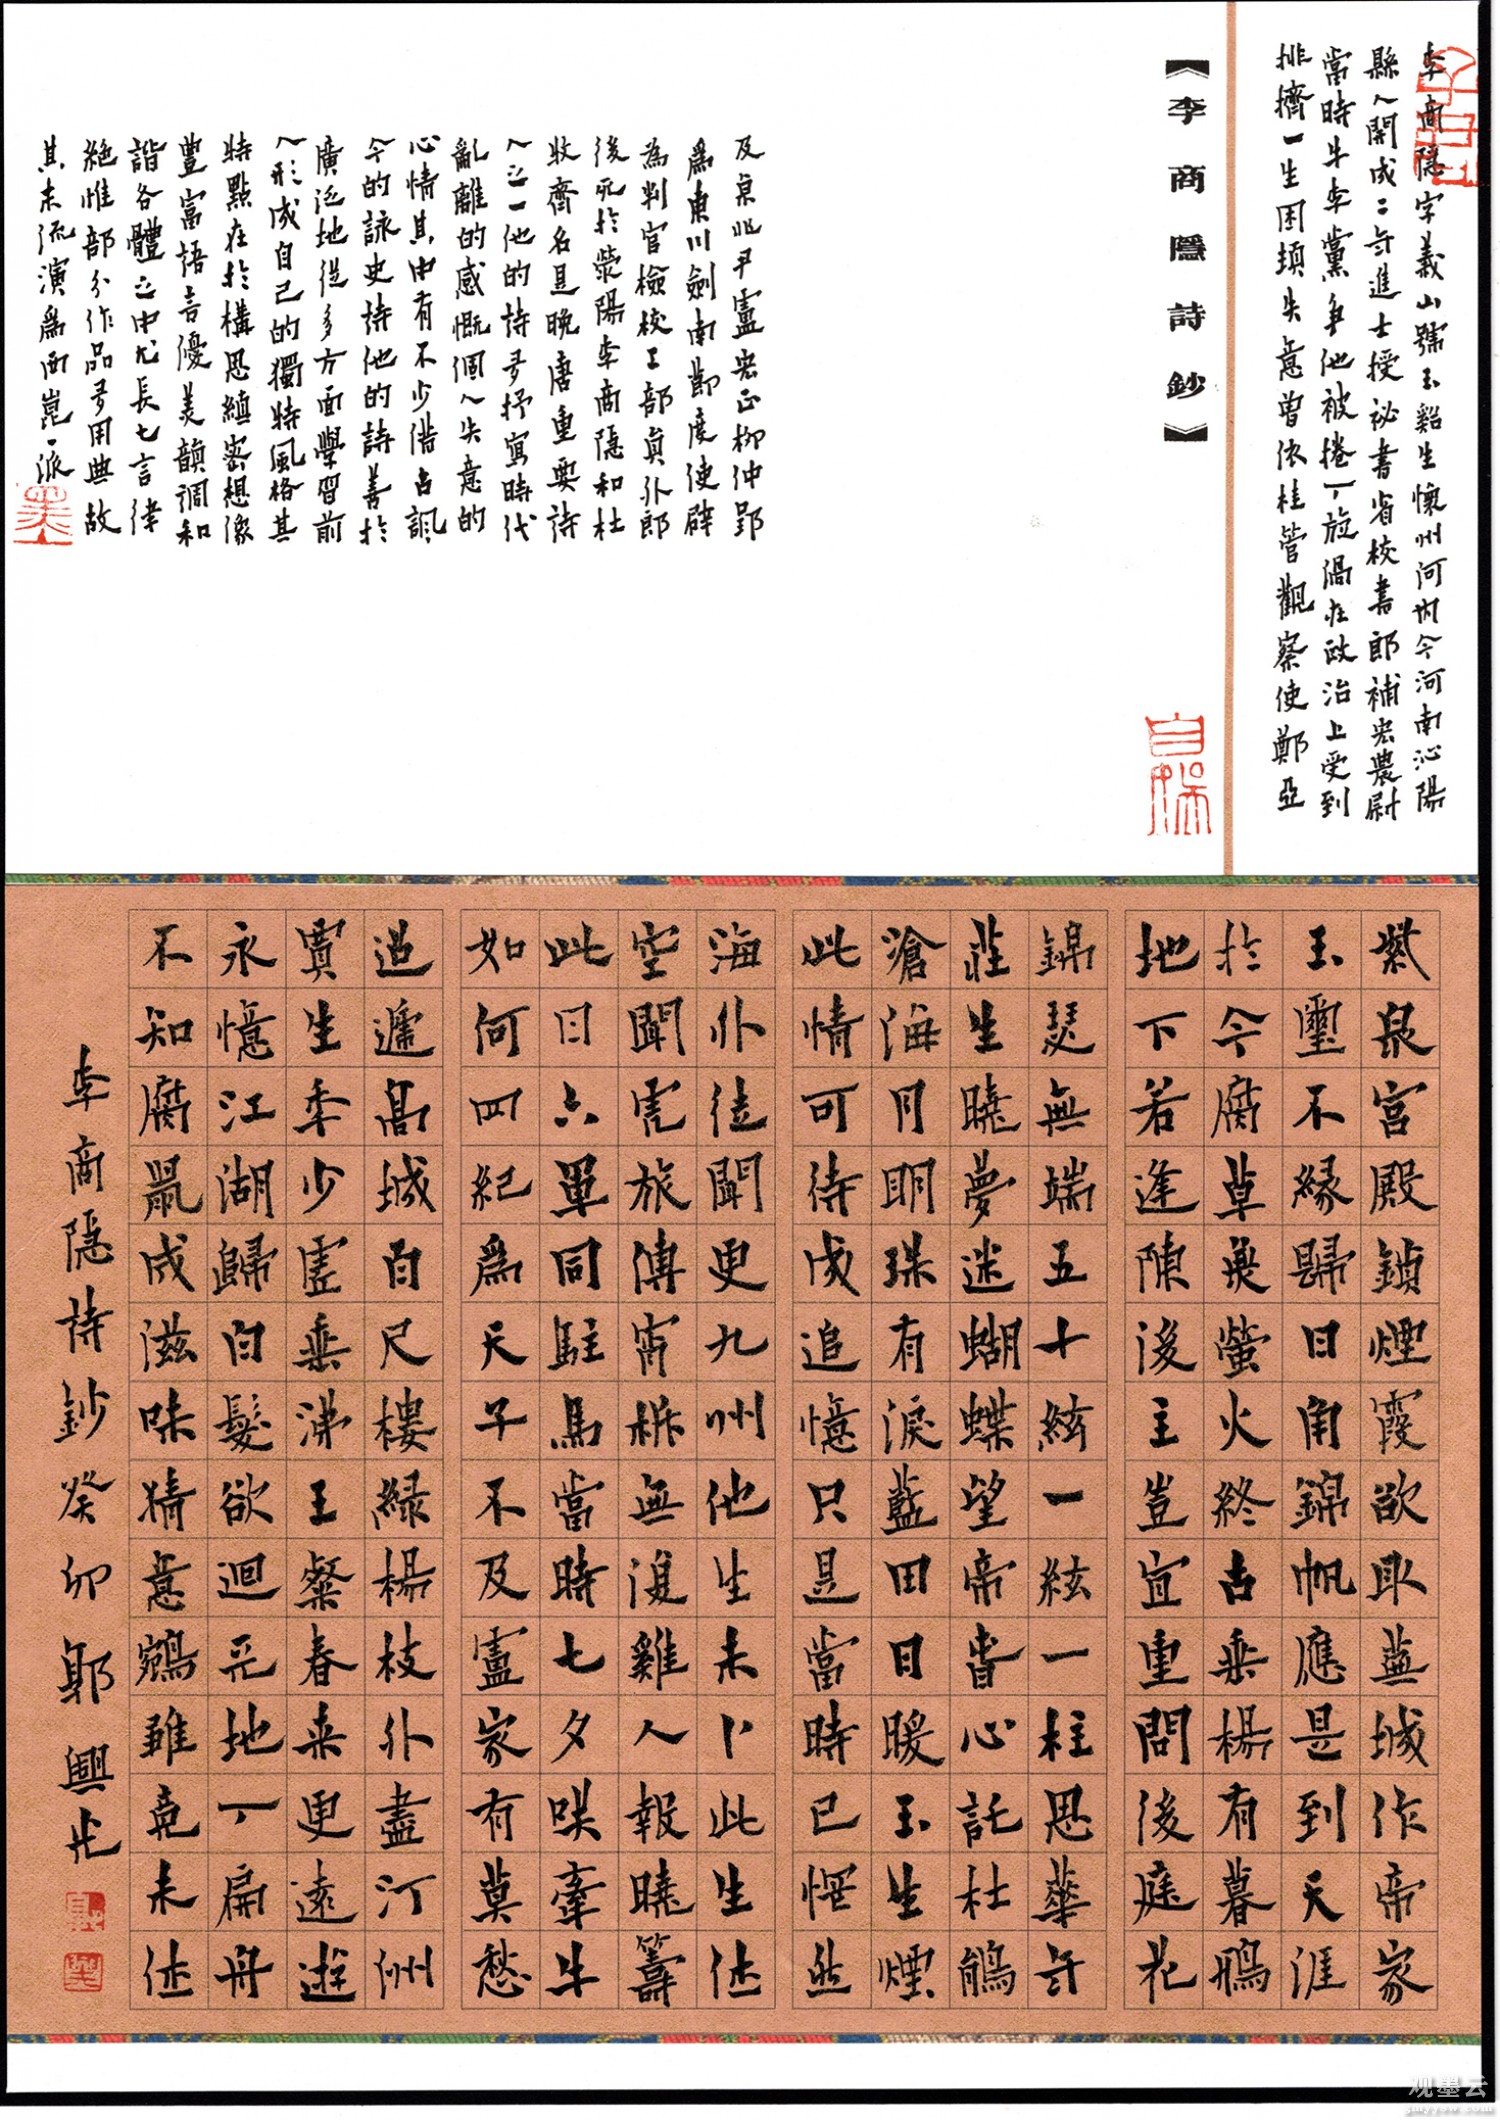 李商隱字義山號玉谿生懷州河內今河南沁陽
縣人開成二年進士授祕書省校書郎補宏農尉
當時牛李黨爭他被捲入旋渦在政治上受到
排擠一生困頓失意曾依桂管觀察使鄭亞
《李商隱詩鈔》
及京兆尹盧宏正柳仲郢
爲東川劍南節度使辟
為判官檢校工部員外郎
後死於滎陽李商隱和杜
牧齊名是晚唐重要詩
人之一他的詩多抒寫時代
亂離的感慨個人失意的
心情其中有不少借古諷
今的詠史詩他的詩善於
廣泛地從多方面學習前
人形成自己的獨特風格其
特點在於構思縝密想像
豐富語言優美韻調和
諧各體之中尤長七言律
絕惟部分作品多用典故
其末流演爲西崑一派
紫泉宮殿鎖煙霞欲取蕪城作帝家
玉璽不緣歸日角錦帆應是到天涯
於今腐草無螢火終古垂楊有暮鴉
地下若逢陳後主豈宜重問後庭花
錦瑟無端五十絃一絃一柱思華年
莊生曉夢迷蝴蝶望帝春心託杜鵑
滄海月明珠有淚藍田日暖玉生煙
此情可待成追憶只是當時已惘然
海外徒聞更九州他生未卜此生休
空聞虎旅傳宵柝無復雞人報曉籌
此日六軍同駐馬當時七夕笑牽牛
如何四紀爲天子不及盧家有莫愁
迢遞高城百尺樓綠楊枝外盡汀洲
賈生年少虛垂涕王粲春来更遠遊
永憶江湖歸白髮欲迴天地入扁舟
不知腐鼠成滋味猜意鵷雛竟未休
李商隱詩鈔癸卯興光
观墨云